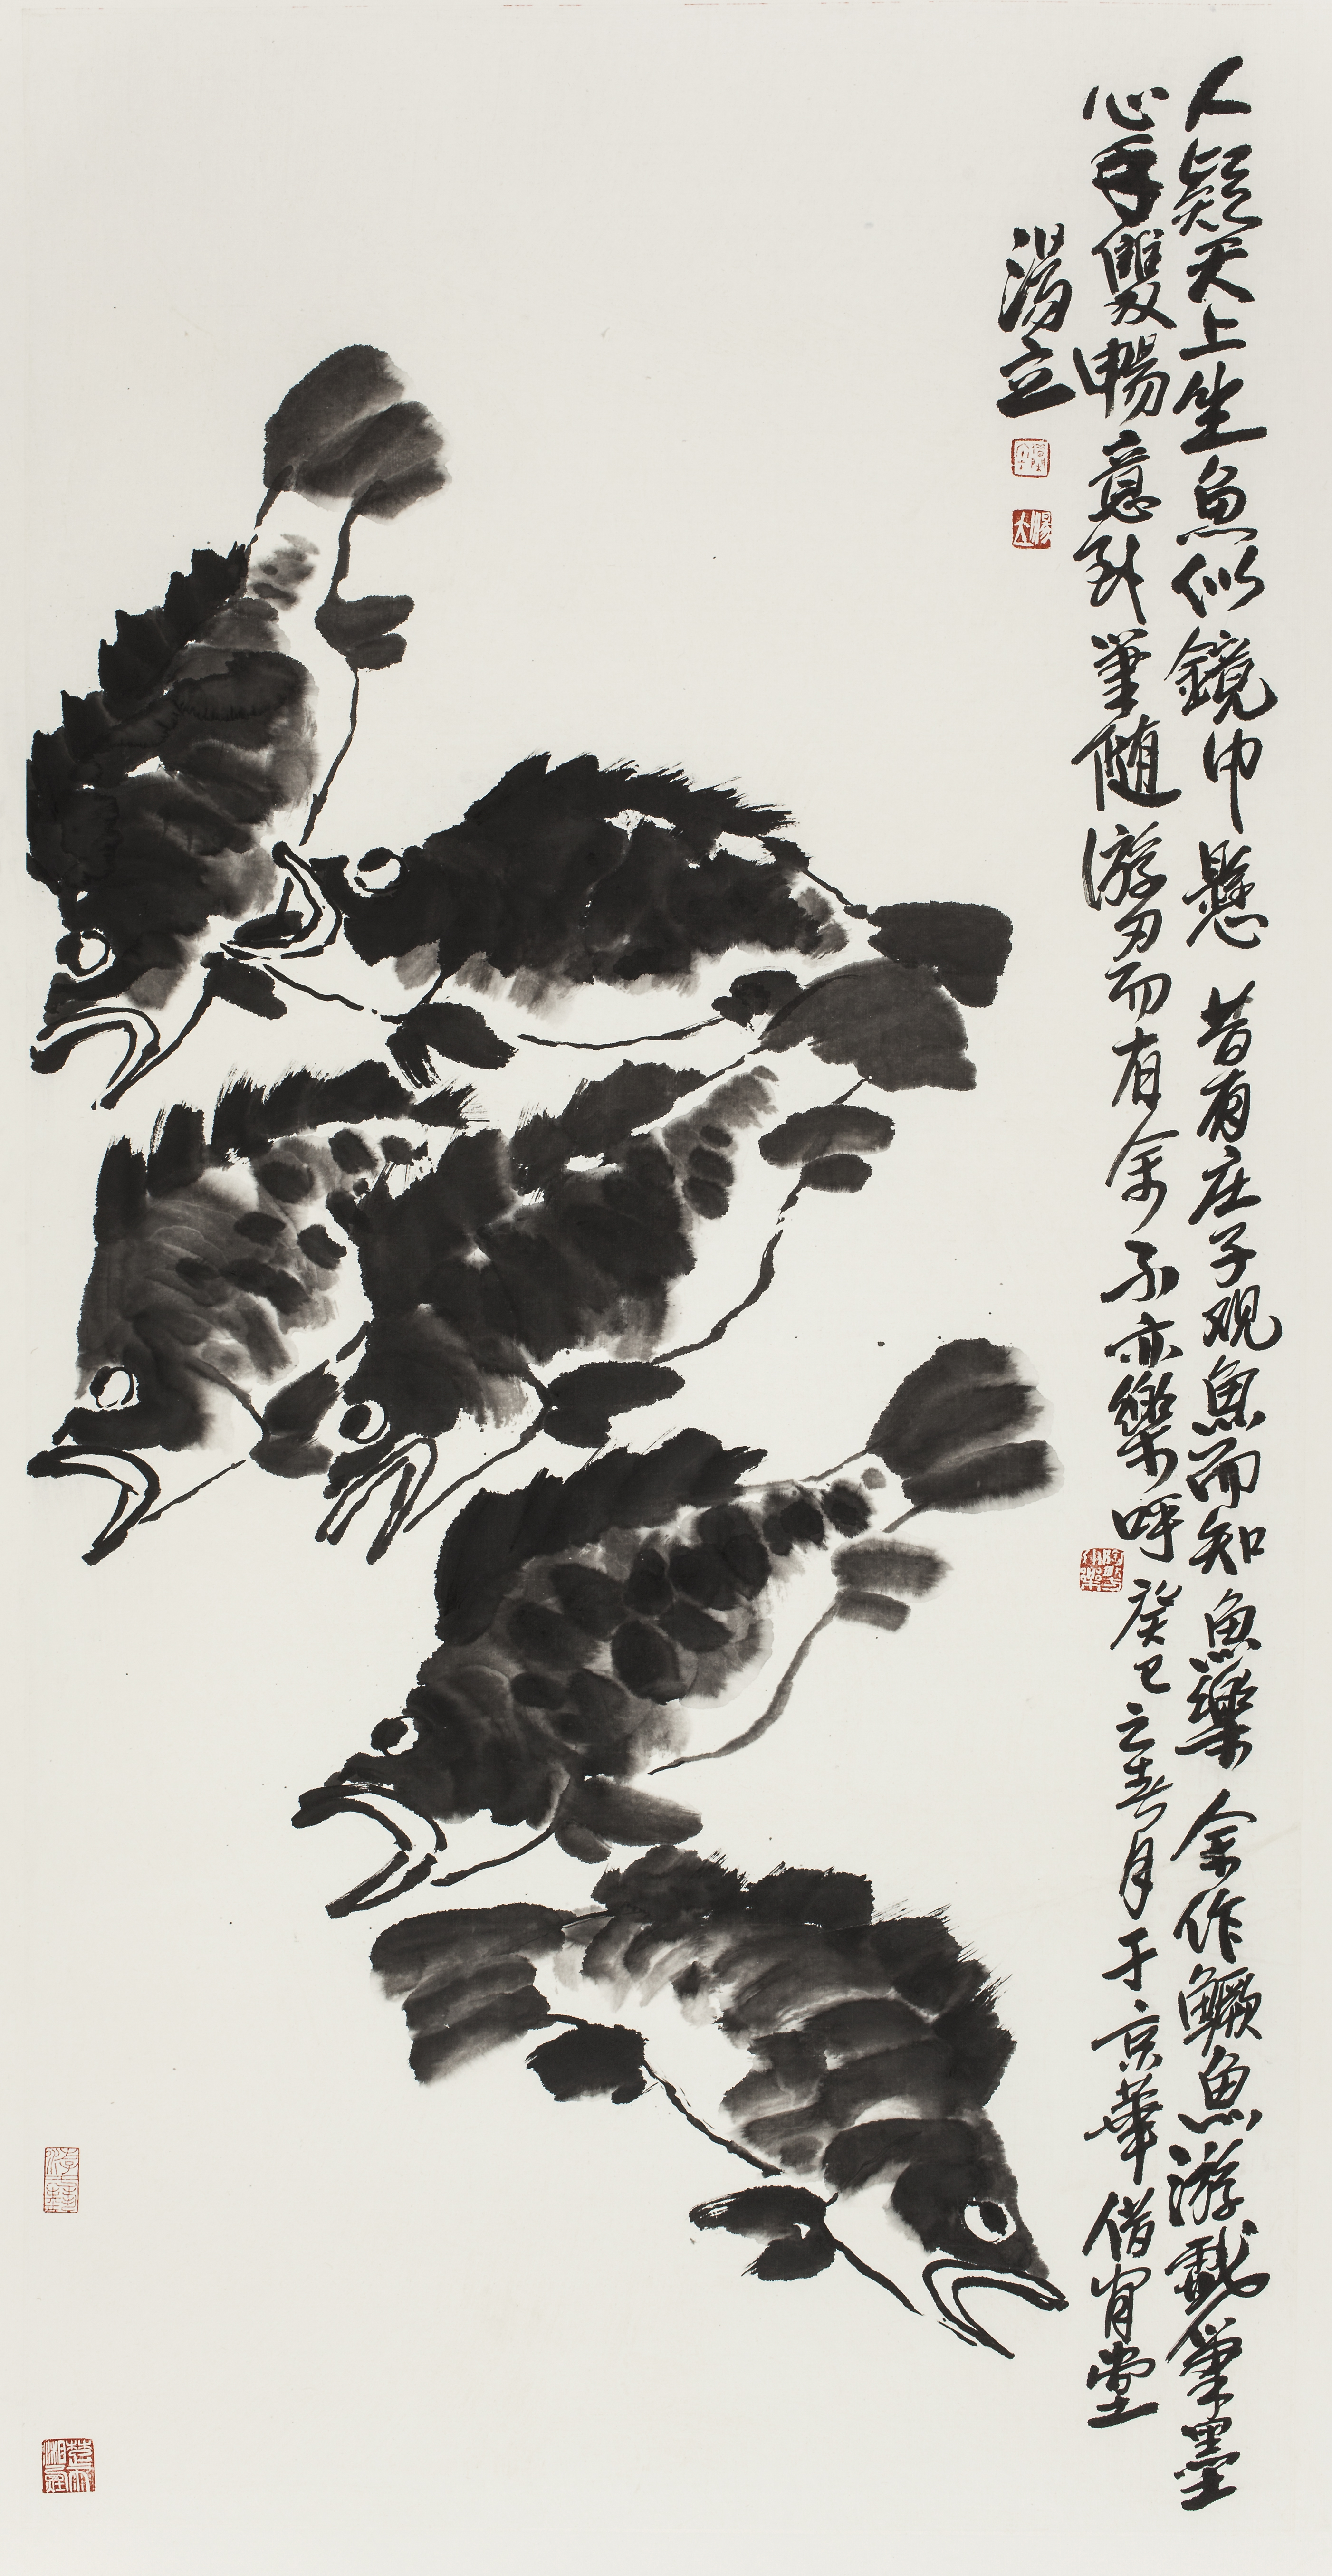 人疑天上坐鱼似鏡中懸 昔有庄子观魚而知魚樂 余作鱖魚游戲筆墨
心手雙暢意到筆随游刃而有余 不亦樂呼 癸巳之春月于京華借官堂
湯立